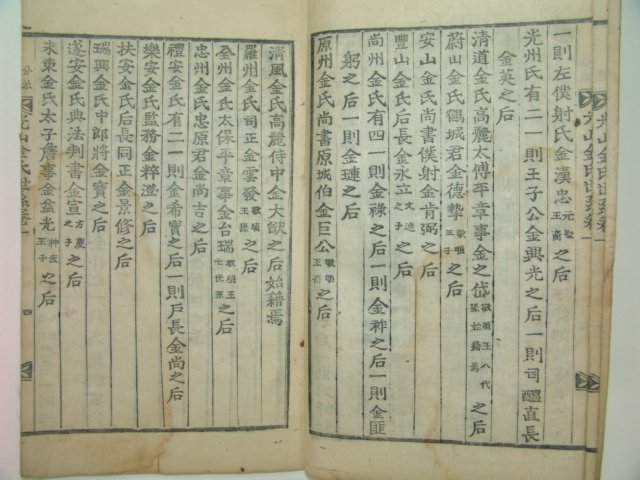 一則左僕射氏金漢忠元聖王裔之后
光州氏有二一則王子公金興光之后一則司醞直長
金英之后
清道金氏高麗太傅平章事金之岱敬順王八代孫始籍焉之后
蔚山金氏鶴城君金德摯敬順王子之后
安山金氏尚書僕射金肯弼之后
豐山金氏后長金永立文迪之子之后
尚州金氏有四一則金祿之后一則金祚之后一則金匪
躬之后一則金璉之后
原州金氏尚書原城伯金巨公敬順王裔之后
清風金氏高麗侍中金大猷之后始籍焉
羅州金氏司正金雲發敬順王孫之后
全州金氏太保平章事金台瑞敬順王七世孫之后
忠州金氏忠原君金尚吉之后
禮安金氏有二一則金希實之后一則戶長金尚之后
樂安金氏監務金粹澄之后
扶安金氏后長同正金景修之后
瑞興金氏中郎將金寶之后
遂安金氏典法判書金宣方慶之子之后
永東金氏太子詹事金益光神武王子之后
分派
光山金氏世系卷一
四
光山金氏世系卷一